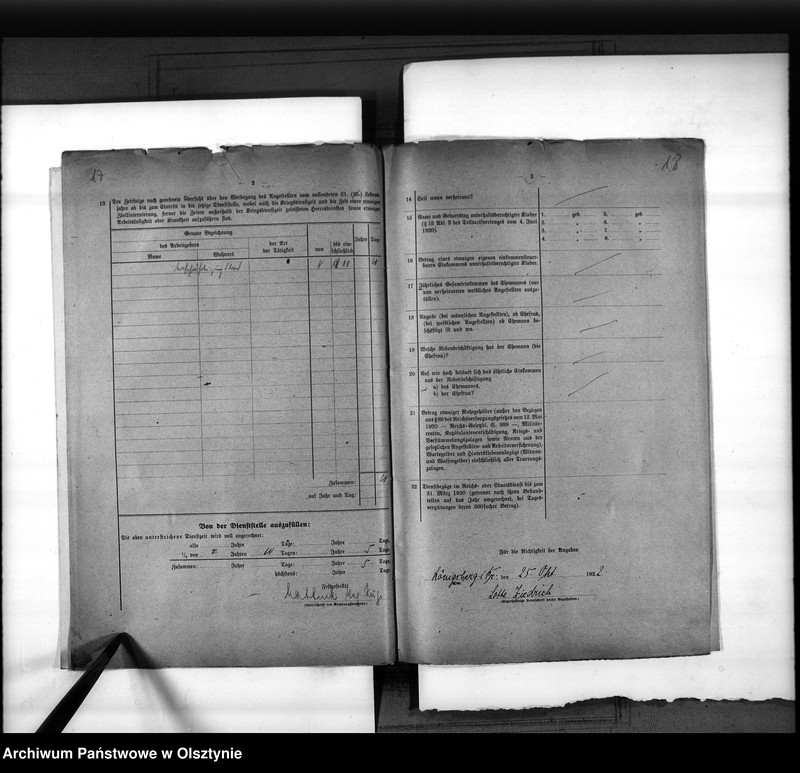 17
— 2 —
13 Der Zeitfolge nach geordnete Übersicht über den Werdegang des Angestellten vom vollendeten 21. (20.) Lebens-
jahre ab bis zum Eintritt in die jetzige Dienststelle, wobei auch die Kriegsdienstzeit und die Zeit einer etwaigen
Zivilinternierung, ferner die Zeiten außerhalb der Kriegsdienstzeit geleisteten Heeresdienstes sowie etwaiger
Arbeitslosigkeit oder Krankheit aufzuführen sind.
Genaue Bezeichnung
des Arbeitgebers
der Art
der Tätigkeit
von
bis ein-
schließlich
Jahre
Tage
Name
Wohnort
Zusammen:
auf Jahr und Tag:
Von der Dienststelle auszufüllen:
Die oben unterstrichene Dienstzeit wird voll angerechnet:
also Jahre Tage: Jahre Tage
½ von Jahren Tagen: Jahre 5 Tage
Zusammen: Jahre Tage: Jahre 5 Tage
höchstens: Jahre Tage
Festgestellt:
(Unterschrift des Rechnungsbeamten)
18
— 3 —
14 Seit wann verheiratet?
15 Name und Geburtstag unterhaltsberechtigter Kinder
(§ 15 Abs. 5 des Teiltarifvertrages vom 4. Juni
1920).
1. geb. 5. geb.
2. " 6. "
3. " 7. "
4. " 8. "
16 Betrag eines etwaigen eigenen einkommensteuer-
baren Einkommens unterhaltsberechtigter Kinder.
17 Jährliches Gesamteinkommen des Ehemannes (nur
von verheirateten weiblichen Angestellten auszu-
füllen).
18 Angabe (bei männlichen Angestellten), ob Ehefrau,
(bei weiblichen Angestellten) ob Ehemann be-
schäftigt ist und wo.
19 Welche Nebenbeschäftigung hat der Ehemann (die
Ehefrau)?
20 Auf wie hoch beläuft sich das jährliche Einkommen
aus der Nebenbeschäftigung
a) des Ehemannes,
b) der Ehefrau?
21 Betrag etwaiger Ruhegehälter (außer den Bezügen
aus § 99 des Reichsversorgungsgesetzes vom 12. Mai
1920 — Reichs-Gesetzbl. S. 989 —, Militär-
renten, Kapitulantenentschädigung, Kriegs- und
Verstümmelungszulagen sowie Renten aus der
gesetzlichen Angestellten- und Arbeiterversicherung),
Wartegelder und Hinterbliebenenbezüge (Witwen-
und Waisengelder) einschließlich aller Teuerungs-
zulagen.
22 Dienstbezüge im Reichs- oder Staatsdienst bis zum
31. März 1920 (getrennt nach ihren Bestand-
teilen auf das Jahr umgerechnet, bei Tages-
vergütungen deren 300facher Betrag).
Für die Richtigkeit der Angaben
Königsberg i/Pr: den 25 Okt. 1922.
Lotte Ziedrich
(Eigenhändige Unterschrift des/der Angestellten)
Archiwum Państwowe w Olsztynie